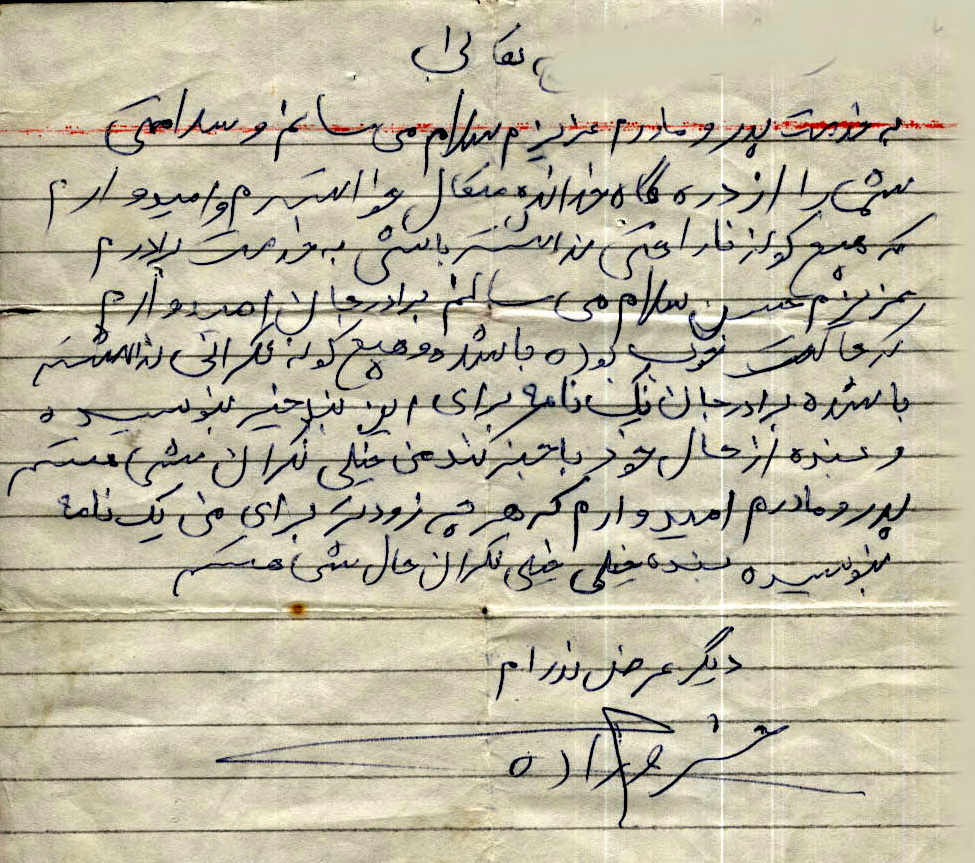 به خدمت پدر و مادرم عزیزم سلام می سانم و سلامتی
شما را از دره گاه خدانده متعال خواسترم و امیدوارم
که هیچ گونه ناراحتی نداشته باشی به خدمت برادرم
عزیزم حسن سلام می سانم برادر جان امیدوارم
که حالت خوب بوده باشده و هیچ گونه نگرانی نداشته
باشده برادر جان یک نامه برای این بنده خیر بنویسیده
و بنده از حال خود باخبر کند من خیلی نگران شمی هستم
پدر و مادرم امیدوارم که هر چه زودتر برای من یک نامه
بنویسیده بنده خیلی خیلی نگران حال شمی هستم
دیگر عرض ندرام